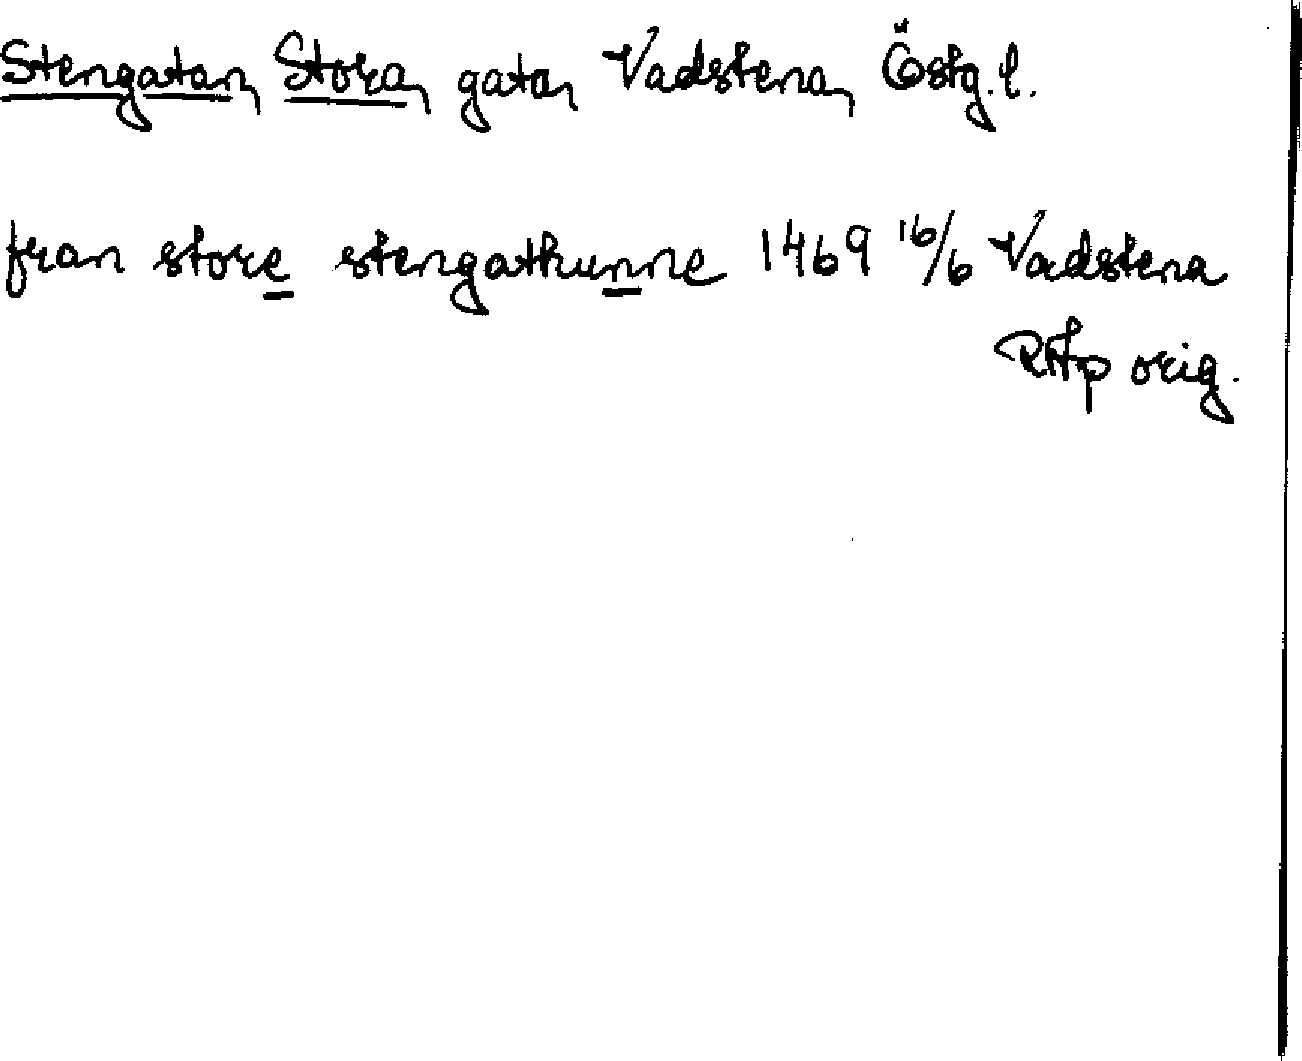 Stengatan, Stora, gata, Vadstena, Östg.l.
fran store stengathunne 1469 16/6 Vadstena
RAp orig.